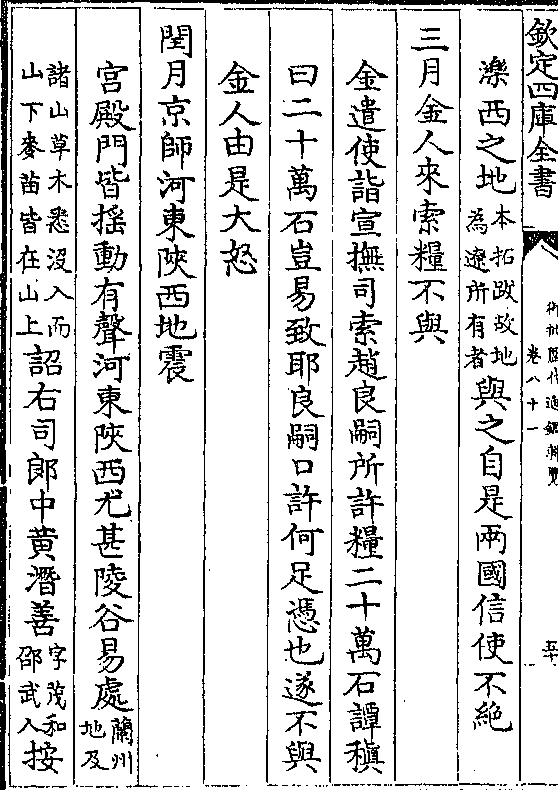 欽定四庫全書
御批歷代通鑑輯覽
卷八十一
濼西之地本拓跋故地為遼所有者與之自是兩國信使不絶
三月金人來索糧不與
金遣使詣宣撫司索趙良嗣所許糧二十萬石譚稹
曰二十萬石豈易致耶良嗣口許何足憑也遂不與
金人由是大怒
閏月京師河東陝西地震
宫殿門皆揺動有聲河東陝西尤甚陵谷易處蘭州地及
諸山草木悉沒入而山下麥苗皆在山上詔右司郎中黄潛善字茂和邵武人按